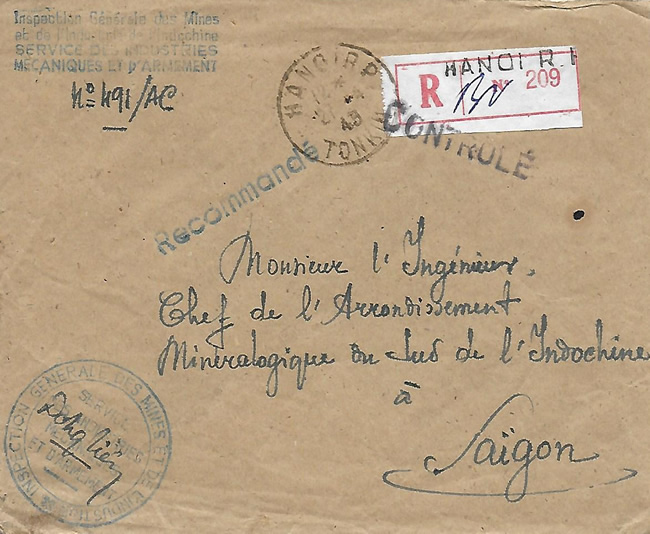 Inspection Générale des Mines
et de l'Industrie de l'Indochine
SERVICE DES INDUSTRIES
MÉCANIQUES ET D'ARMEMENT
Nº 491/AC
HANOI R.P
43
TONKIN
HANOI R.P
R Nº 209
CONTROLÉ
Recommandé
Monsieur l'Ingénieur,
Chef de l'Arrondissement
Minéralogique du Sud de l'Indochine
à
Saïgon
INSPECTION GÉNÉRALE DES MINES ET DE L'INDUSTRIE
SERVICE
ET D'ARMEMENT